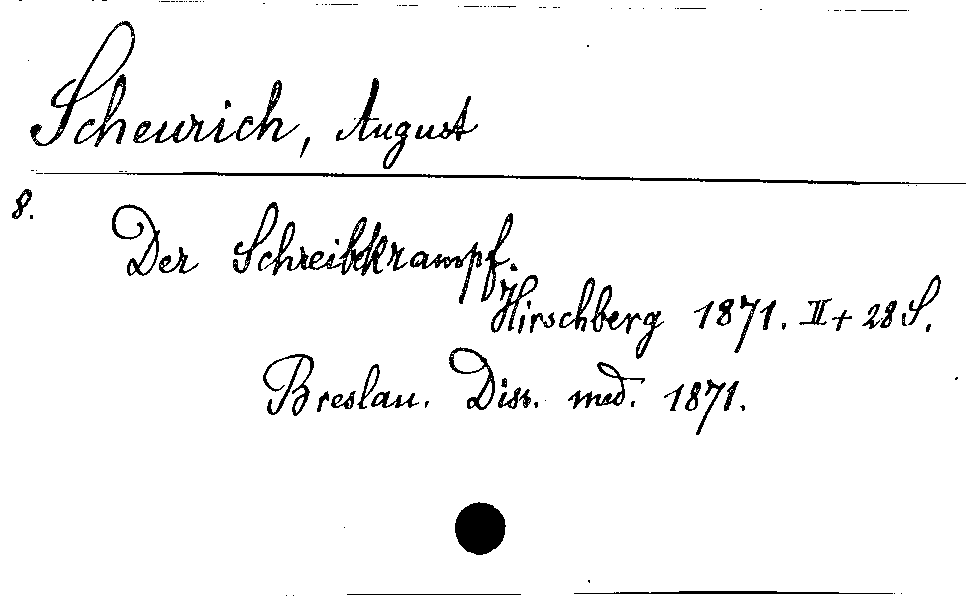 Scheurich, August
8.
Der Schreibkrampf.
Hirschberg 1871. II + 28 S.
Breslau. Diss. med. 1871.